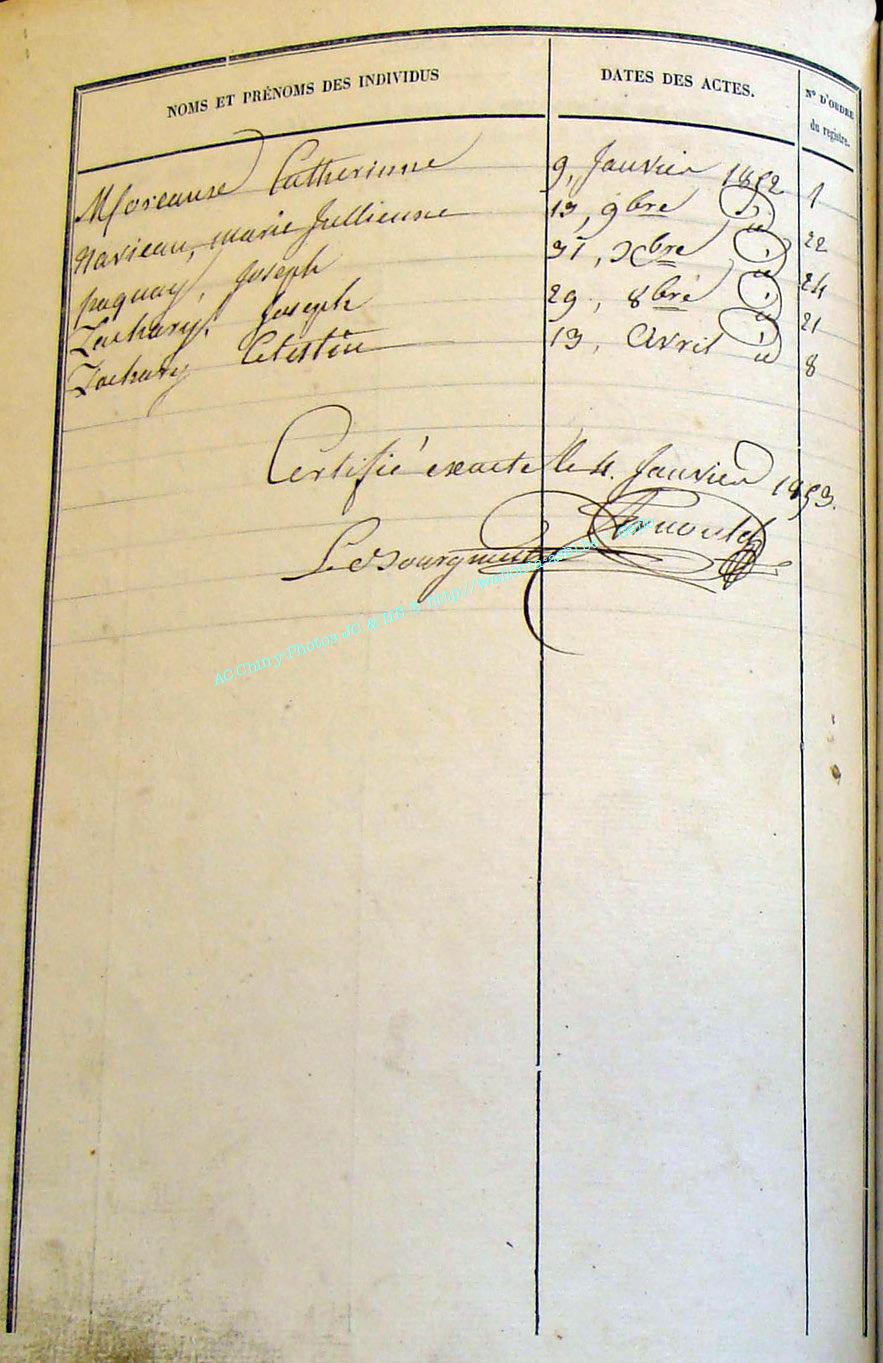 NOMS ET PRÉNOMS DES INDIVIDUS DATES DES ACTES. N° D'ORDRE du registre.
Moreause Catherinne 9, Janvier 1852 1
Navieau, marie Jullienne 13, 9bre id 22
paquay, Joseph 31, Xbre id 24
Zachary, Joseph 29, 8bre id 21
Zachary Celestin 13, Avril id 8
Certifié exacte le 4. Janvier 1853.
Le Bourgmestre
Arnould
AC Chiny Photos JC & MB © http://